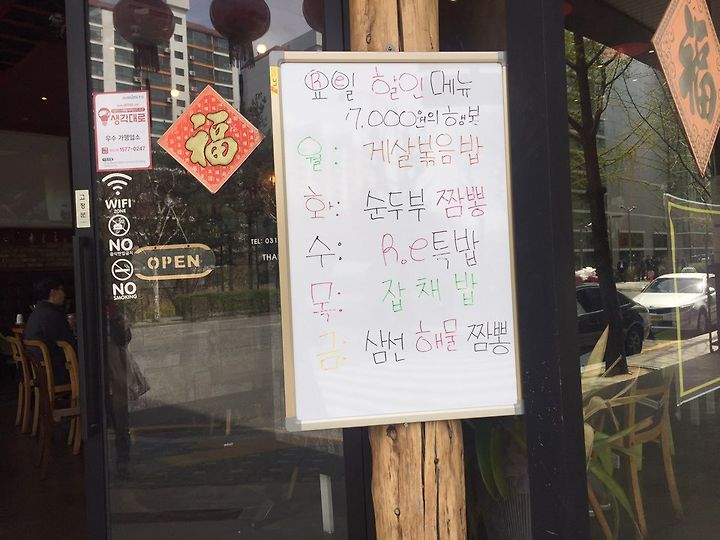 요일 할인 메뉴
7,000원의 행복
월: 게살볶음밥
화: 순두부 짬뽕
수: R.e특밥
목: 잡채밥
금: 삼선 해물 짬뽕
생각대로
우수 가맹업소
1577-0247
福
WIFI
ZONE
NO
NO
SMOKING
OPEN
TEL: 031
THA
福